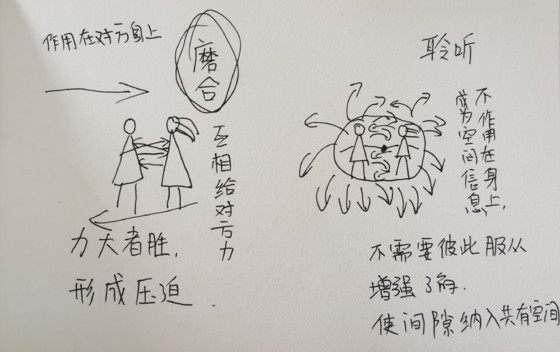 作用在对方身上
磨合
互相给对方力
力大者胜,
形成压迫.
聆听
不作用在身上,
成为空间信息,
不需要彼此服从
增强了解.
使间隙纳入共有空间